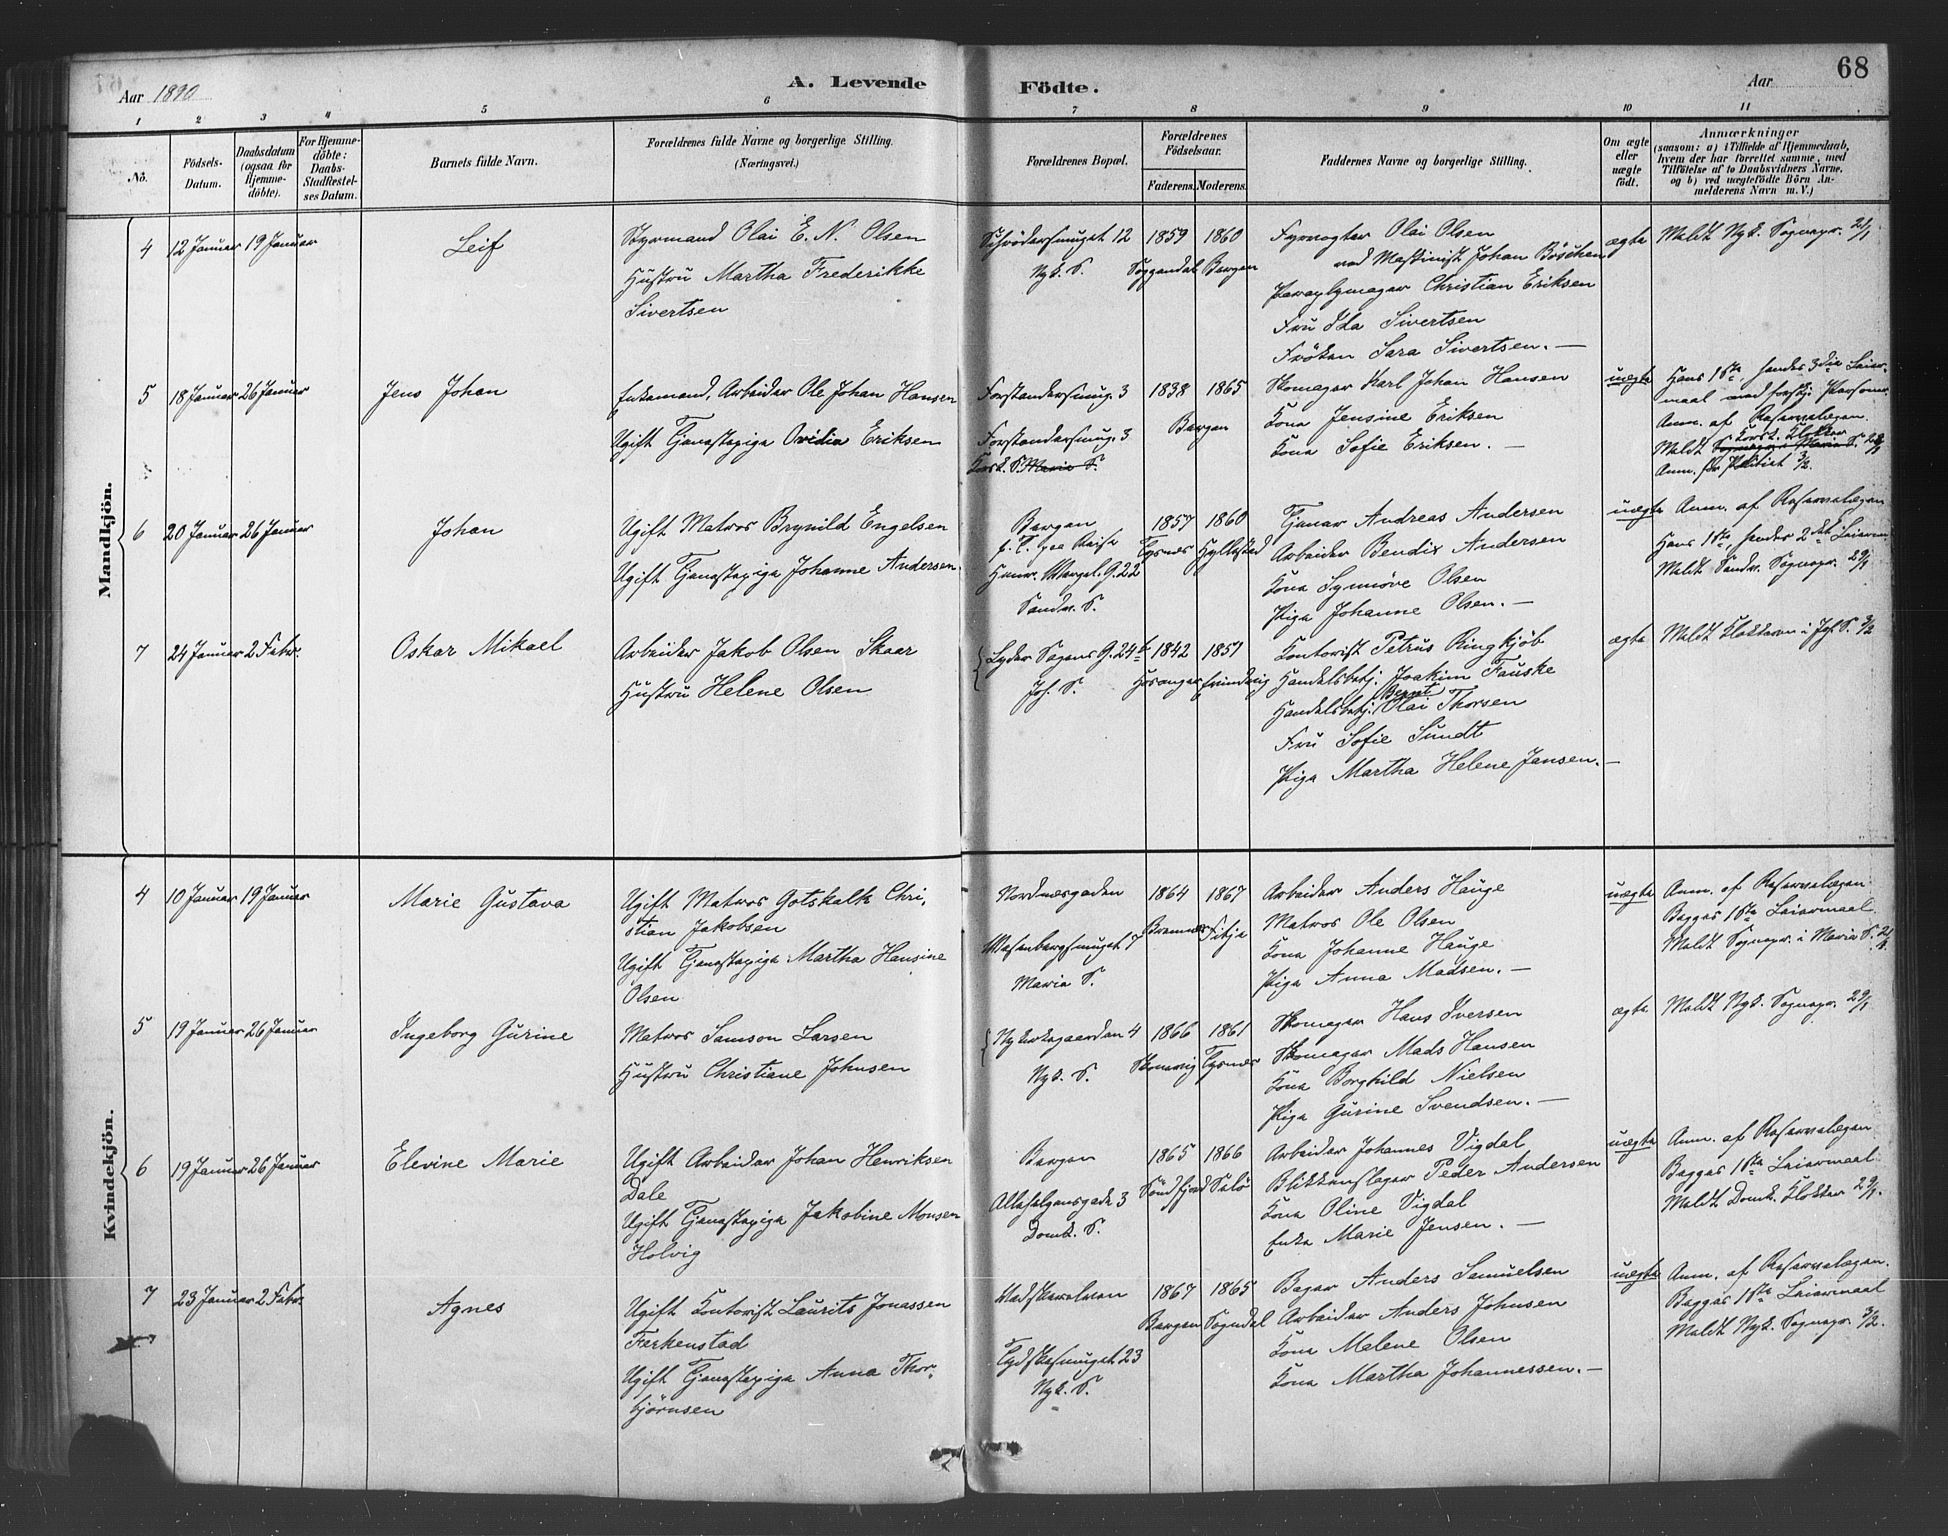 Aar 1890
A. Levende
Födte.
Aar
68
1 2 3 4 5 6 7 8 9 10 11
No.
Födsels-
Datum.
Daabsdatum
(ogsaa for
Hjemme-
döbte).
For Hjemme-
döbte:
Daabs-
Stadfæstel-
ses Datum.
Barnets fulde Navn.
Forældrenes fulde Navne og borgerlige Stilling.
(Næringsvei.)
Forældrenes Bopæl.
Forældrenes
Födselsaar.
Faderens.
Moderens.
Faddernes Navne og borgerlige Stilling.
Om ægte
eller
uægte
födt.
Anmærkninger
(saasom: a) i Tilfælde af Hjemmedaab,
hvem der har forrettet samme, med
Tilföielse af to Daabsvidners Navne,
og b) ved uægtefödte Börn An-
melderens Navn m. V.)
Mandkjön.
4 12 Januar 19 Januar
Leif
Styrmand Olai E. N. Olsen
Hustru Martha Frederikke
Sivertsen
Schrödersmuget 12
Nyk. S.
1859 1860
Soggendal Bergen
Fyrvogter Olai Olsen
ved Maskinist Johan Böschen
Paraplymager Christian Eriksen
Fru Ida Sivertsen
Fröken Sara Sivertsen. —
ægte
Meldt Nyk. Sognepr. 21/1
5 18 Januar 26 Januar
Jens Johan
Enkemand, Arbeider Ole Johan Hansen
Ugift Tjenestepige Ovidia Eriksen
Forstandersmug. 3
Forstandersmug. 3
Korsk. S. Maria S.
1838 1865
Bergen
Skomager Karl Johan Hansen
Kona Jensine Eriksen
Kona Sofie Eriksen. —
uægte
Hans 1ste hendes 3die Leier-
maal med forskj. Personer
Anm. af Reservelægen
Korsk. Klokker
Meldt Sognepr. i Maria S. 28/1
Anm. for Politiet 3/2.
6 20 Januar 26 Januar
Johan
Ugift Matros Brynild Engelsen
Ugift Tjenestepige Johanne Andersen.
Bergen
f. T. paa Reise
Henr. Wergel. G. 22
Sandv. S.
1857 1860
Tysnes Hyllestad
Tjener Andreas Andersen
Arbeider Bendix Andersen
Kona Synnöve Olsen
Pige Johanne Olsen. —
uægte
Anm. af Reservelægen
Hans 1ste hendes 2det Leierm.
Meldt Sandv. Sognepr. 29/1
7 24 Januar 2 Febr.
Oskar Mikael
Arbeider Jakob Olsen Skaar
Hustru Helene Olsen
Lyder Sagens G. 24 b
Joh. S.
1842 1857
Hosanger Evindvig
Kontorist Petrus Ringkjöb
Handelsbetj. Joakim Fauske
Bernt
Handelsbetj. Olai Thorsen
Fru Sofie Sundt
Pige Martha Helene Jansen. —
ægte
Meldt Klokkeren i Joh. S. 3/2
Kvindekjön.
4 10 Januar 19 Januar
Marie Gustava
Ugift Matros Gotskalk Chri,
stian Jakobsen
Ugift Tjenestepige Martha Hansine
Olsen
Nordnæsgaden
Wesenbergsmuget 7
Maria S.
1864 1867
Bremnes Fitje
Arbeider Anders Hauge
Matros Ole Olsen
Kona Johanne Hauge
Pige Anna Madsen. —
uægte
Anm. af Reservelægen
Begges 1ste Leiermaal
Meldt Sognepr. i Maria S. 21/1
5 19 Januar 26 Januar
Ingeborg Gurine
Matros Samson Larsen
Hustru Christiane Johnsen
Nykirkegaarden 4
Nyk. S.
1866 1861
Skonevig Tysnes
Skomager Hans Iversen
Skomager Mads Hansen
Kona Borghild Nielsen
Pige Gurine Svendsen. —
ægte
Meldt Nyk. Sognepr. 29/1
6 19 Januar 26 Januar
Elevine Marie
Ugift Arbeider Johan Henriksen
Dale
Ugift Tjenestepige Jakobine Monsen
Holvig
Bergen
Allehelgensgade 3
Domk. S.
1865 1866
Söndfjord Selö
Arbeider Johannes Vigdal
Blikkenslager Peder Andersen
Kona Oline Vigdal
Enke Marie Jensen. —
uægte
Anm. af Reservelægen
Begges 1ste Leiermaal
Meldt Domk. Klokker 29/1.
7 23 Januar 2 Febr.
Agnes
Ugift Kontorist Laurits Jonassen
Ferkenstad
Ugift Tjenestepige Anna Thor-
björnsen
Vadskerelven
Tydskesmuget 23
Nyk. S.
1867 1865
Bergen Sogndal
Bager Anders Samuelsen
Arbeider Anders Johnsen
Kona Malene Olsen
Kona Martha Johannessen. —
uægte
Anm. af Reservelægen.
Begges 1ste Leiermaal
Meldt Nyk. Sognepr. 3/2.